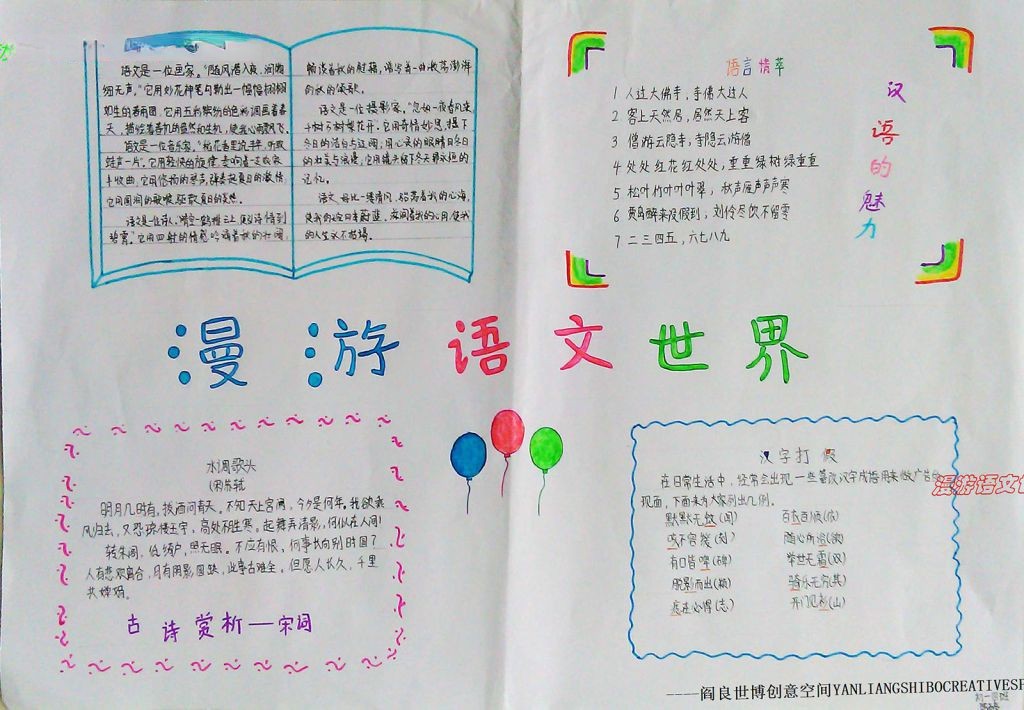 语文是一位画家。“随风潜入夜，润物
细无声。”它用妙花神笔勾勒出一幅幅栩栩
如生的春雨图，它用五彩缤纷的色彩调画着春
天，描绘着春机的盎然和生机，使我心雨飘飞。
语文是一位音乐家。“稻花香里说丰年，听取
蛙声一片。”它用轻快的旋律
丰收曲，它用悠扬的琴声，弹奏起夏日的激情，
语文是一位诗人。“晴空一鹤排云上，便引诗情到
碧霄。”它用四射的情感吟诵着秋的
的秋的颂歌。
语文是一位摄影家。“忽如一夜春风来，
千树万树梨花开。”它用奇情妙思，摄下
冬日的洁白与辽阔，用心灵的眼睛目冬日
的壮美与浪漫，它用镜头留下冬天那永恒的
记忆。
语文，好比一缕清风，
的人生永不枯竭。
语言精萃
1 人过大佛寺，寺佛大过人
2 客上天然居，居然天上客
3 僧游云隐寺，寺隐云游僧
4 处处红花红处处，重重绿树绿重重
5 松叶竹叶叶叶翠，秋声雁声声声寒
6 贾岛醉来没假到，刘伶尽饮不留零
7 二三四五，六七八九
汉语的魅力
漫游语文世界
水调歌头
(宋苏轼)
明月几时有，把酒问青天。不知天上宫阙，今夕是何年。我欲乘
风归去，又恐琼楼玉宇，高处不胜寒。起舞弄清影，何似在人间！
转朱阁，低绮户，照无眠。不应有恨，何事长向别时圆？
人有悲欢离合，月有阴影圆缺，此事古难全。但愿人长久，千里
共婵娟。
古诗赏析—宋词
汉字打假
在日常生活中，经常会出现一些篡改汉字成语用来做广告的
现面，下面来为大家列出几例。
默默无蚊(闻) 百衣百顺(依)
咳不容缓(刻) 随心所浴(欲)
有口皆啤(碑) 举世无霜(双)
脱影而出(颖) 骑乐无穷(其)
痣在必得(志) 开门见衫(山)
漫游语文世
----阎良世博创意空间YANLIANGSHIBOCREATIVESP